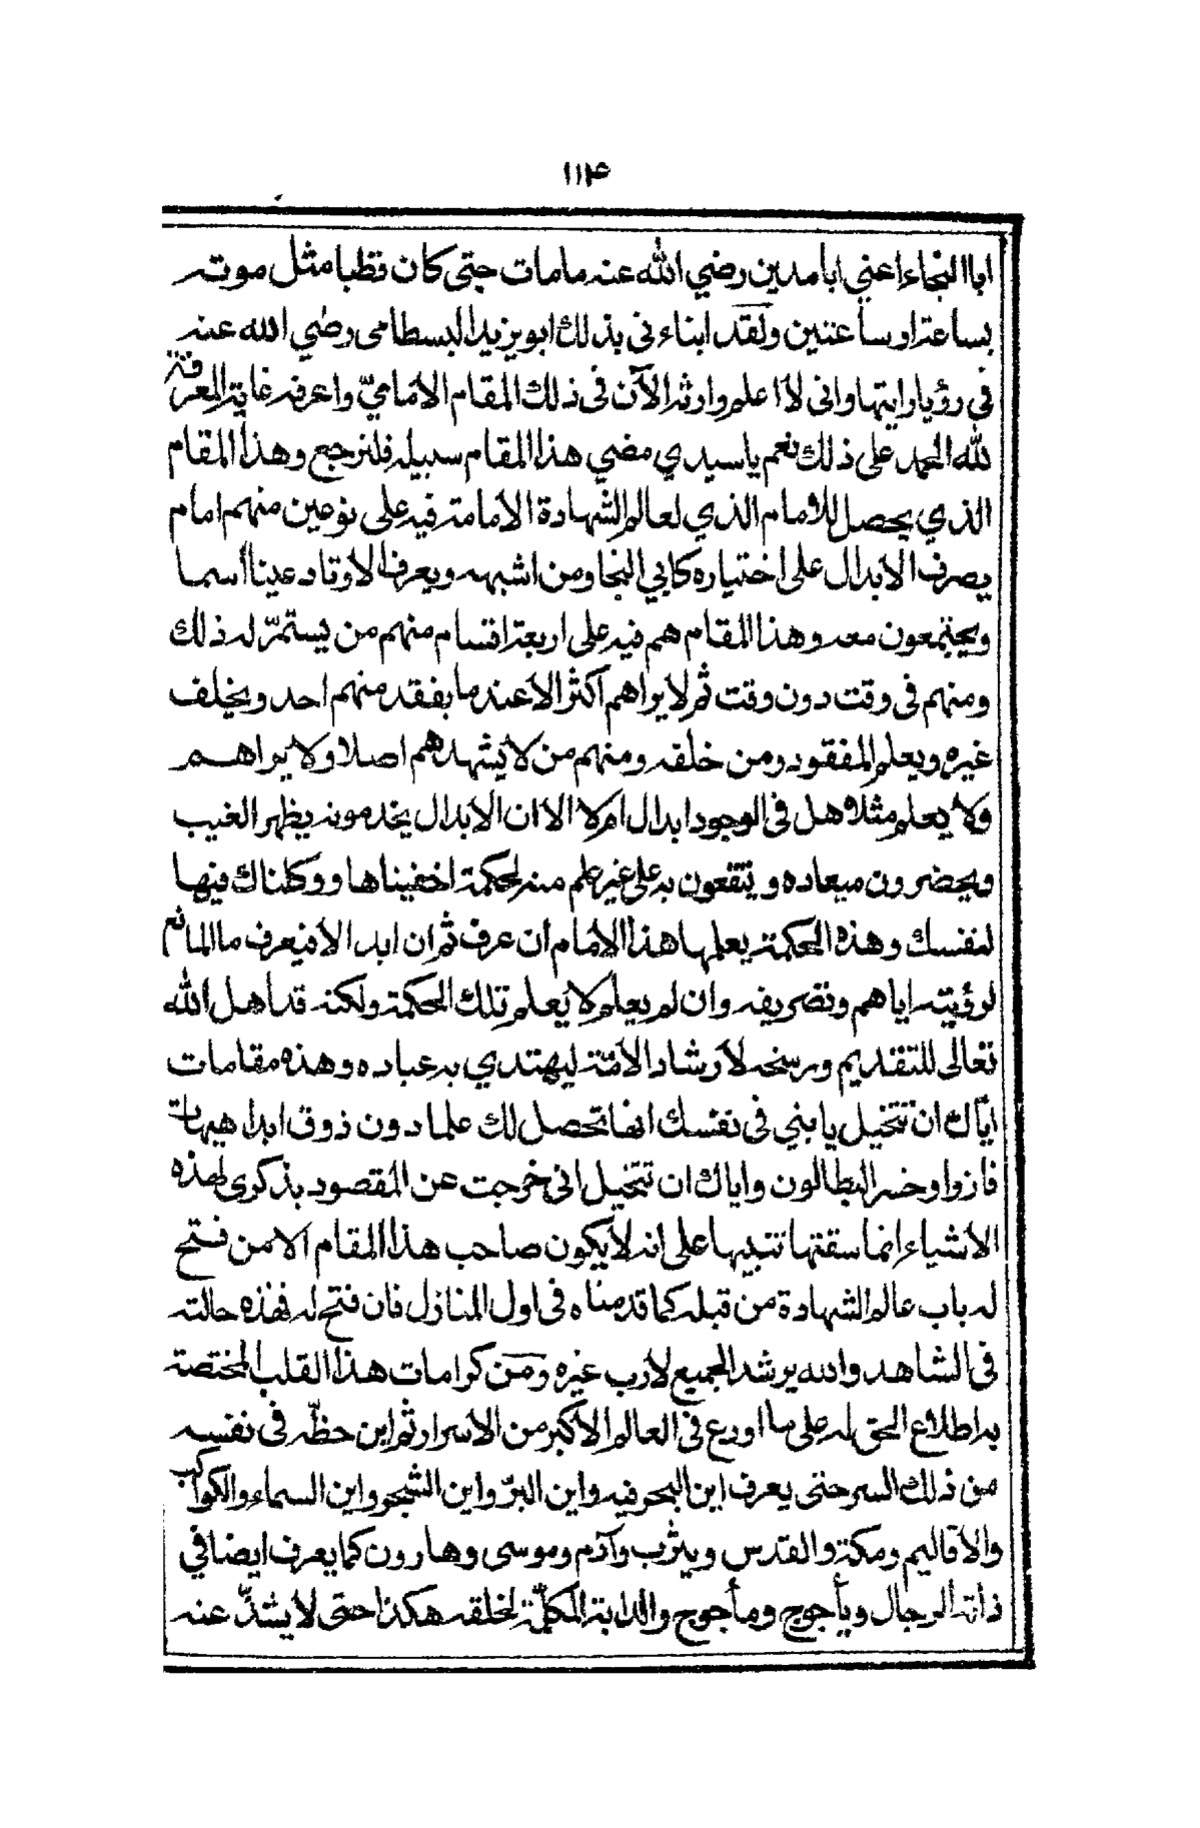 ۱۱۴
ابا النجاء اعني ابا مدين رضي الله عنه ما مات حتى كان قطبا مثل موته
بساعة او ساعتين ولقد ابناء نى بذلك ابو يزيد البسطامى رضي الله عنه
فى رؤيا رايتها وانى لأ اعلم وارثه الآن فى ذلك المقام الأمامي واعرفه غاية المعرفة
لله الحمد على ذلك نعم يا سيدي مضي هذا المقام سبيله فلنرجع وهذا المقام
الذي يحصل للامام الذي لعالم الشهادة الأمامة فيه على نوعين منهم امام
يصرف الأبدال على اختياره كابي النجا ومن اشبهه ويعرف الاوتاد عينا أسما
ويجتمعون معه وهذا المقام هم فيه على اربعة اقسام منهم من يستمرّ له ذلك
ومنهم فى وقت دون وقت ثم لا يراهم أكثر الأعند ما يفقد منهم احد ويخلف
غيره ويعلم المفقود ومن خلفه ومنهم من لا يشهدهم اصلا ولا يراهم
ولا يعلم مثلا وهل فى الوجود ابدال ام لا الا ان الأبدال يخدمونه بظهر الغيب
ويحضرون ميعاده وينتفعون به على غير علم منه لحكمة اخفيناها ووكلناك فيها
لنفسك وهذه الحكمة يعلمها هذا الأمام ان عرف ثم ان ابدا الأفيعرف ما المانع
لرؤيته اياهم وتصريفه وان لم يعلم لا يعلم تلك الحكمة ولكنه قد اهل الله
تعالى للتقديم ورسخه لأرشاد الأمّة ليهتدي به عباده وهذه مقامات
ايّاك ان تتخيل يا بني فى نفسك انها تحصل لك علما دون ذوق ابدا هيهات
فازوا وخسر البطالون واياك ان تتخيل انى خرجت عن المقصود بذكرى لهذه
الأشياء انما سقتها تنبيها على انه لا يكون صاحب هذا المقام الا من فتح
له باب عالم الشهادة من قبله كما قدمناه فى اول المنازل فان فتح له فهذه حالته
فى الشاهد والله يرشد الجميع لأرب غيره ومن كرامات هذا القلب المختصة
به اطلاع الحق له على ما اودع فى العالم الأكبر من الأسرار ثم اين حظّه فى نفسه
من ذلك السر حتى يعرف اين البحر فيه واين البرّ واين الشجر واين السماء والكواكب
والأقاليم ومكة والقدس ويثرب وآدم وموسى وهارون كما يعرف ايضا في
ذاته الرجال ويأجوج ومأجوج والدابة المكلّمة لخلقه هكذا حتى لا يشذّ عنه